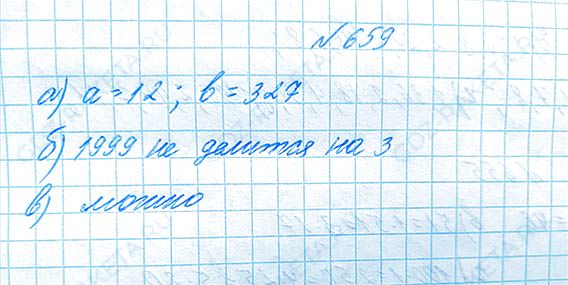 № 659
а) a = 12; b = 327
б) 1999 не делится на 3
в) можно